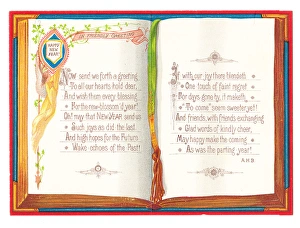 A FRIENDLY GREETING
HAPPY
NEW
YEAR
Now send we forth a greeting,
To all our hearts hold dear,
And with them every blessing,
For the new-blossom'd year!
Oh! may that NEW YEAR send us
Such joys as did the last.
And high hopes for the Future
Wake echoes of the Past!
If with our joy there blendeth
One touch of faint regret
For days gone by, it maketh
To come seem sweeter yet!
And friends, with friends exchanging
Glad words of kindly cheer,
May happy make the coming
As was the parting year!